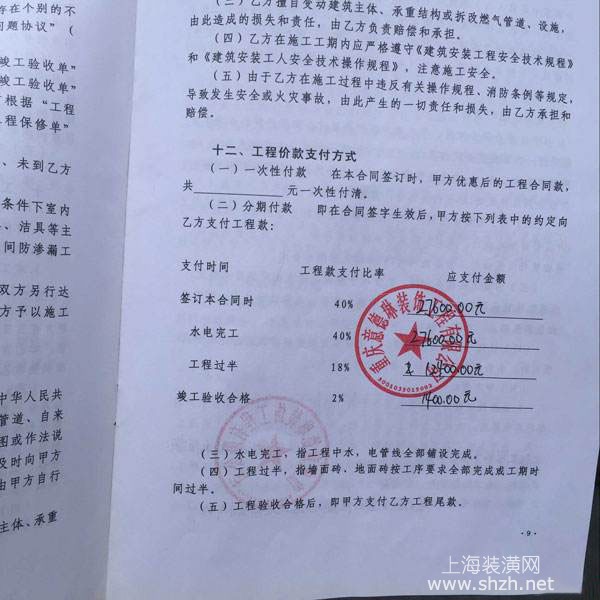 存在个别的不
问题协议”（
竣工验收单”
竣工验收单”
根据“工程
程保修单”
、未到乙方
条件下室内
、洁具等主
间防渗漏工
双方另行达
方予以施工
中华人民共
管道、自来
图或作法说
及时向甲方
由甲方自行
主体、承重
（三）乙方擅自变动建筑主体、承重结构或拆改燃气管道、设施，
由此造成的损失和责任，由乙方负责赔偿和承担。
（四）乙方在施工工期内应严格遵守《建筑安装工程安全技术规程》
和《建筑安装工人安全技术操作规程》，注意施工安全。
（五）由于乙方在施工过程中违反有关操作规程、消防条例等规定，
导致发生安全或火灾事故，由此产生的一切责任和损失，由乙方承担和
赔偿。
十二、工程价款支付方式
（一）一次性付款 在本合同签订时，甲方优惠后的工程合同款，
共 元一次性付清。
（二）分期付款 即在合同签字生效后，甲方按下列表中的约定向
乙方支付工程款：
支付时间 工程款支付比率 应支付金额
签订本合同时 40% 27600.00元
水电完工 40% 27600.00元
工程过半 18% 12400.00元
竣工验收合格 2% 1400.00元
重庆意德琳装饰工程有限公司
5001039019003
（三）水电完工，指工程中水，电管线全部铺设完成。
（四）工程过半，指墙面砖、地面砖按工序要求全部完成或工期时
间过半。
（五）工程验收合格后，即甲方支付乙方工程尾款。
·9·
上海装潢网
www.shzh.net